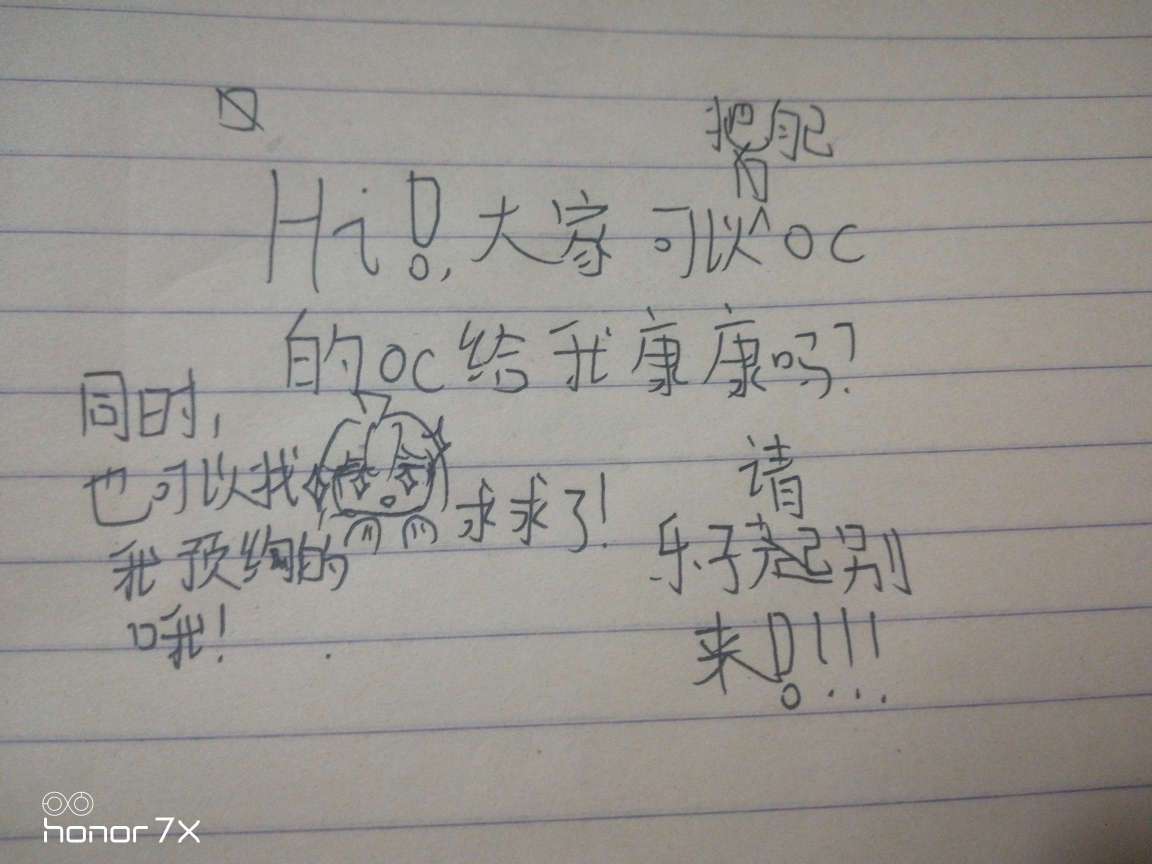 把自己
Hi!,大家可以^OC
的OC给我康康吗?
同时,
也可以找
我预约的
哦!
求求了!
请
乐子别
来!!!!
honor 7X